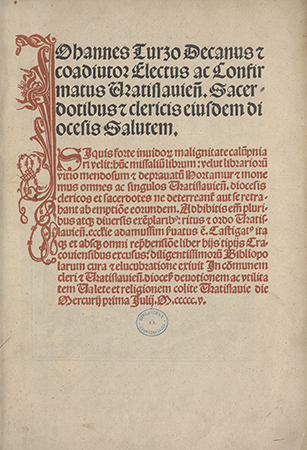 Johannes Turzo Decanus ⁊
coadiutor Electus ac Confir
matus Uratislavieñ. Sacer-
dotibus ⁊ clericis eiusdem di
ocesis Salutem.
Si quis forte inuidoꝝ malignitate calūpnia
ri velit: hūc missaliū librum: velut librarioꝝ
vitio mendosum ⁊ deprauatū Hortamur ⁊ mone
mus omnes ac singulos Uratislavieñ. diocesis
clericos et sacerdotes ne deterreant aut se retra-
hant ab emptiōe eorumdem. Adhibitis em̄ pluri
bus atqꝫ diuersis exēplarib⁹: ritus ⁊ ordo Uratis-
lavieñ. eccl̄ie adamussim ſuatus ē. Castigat⁹ ita
qꝫ et absqꝫ omni rep̄hensiōe liber hijs tipis Cra-
couiensibus excusus: diligentissimorū Bibliopo
larum cura ⁊ elucubratione exiuit In cōmunem
cleri ⁊ Uratislavieñ. dioceſ deuotionem ac vtilita
tem Ualete et religionem colite Uratislavie die
Mercurij prima Julij. M.ccccc.v.